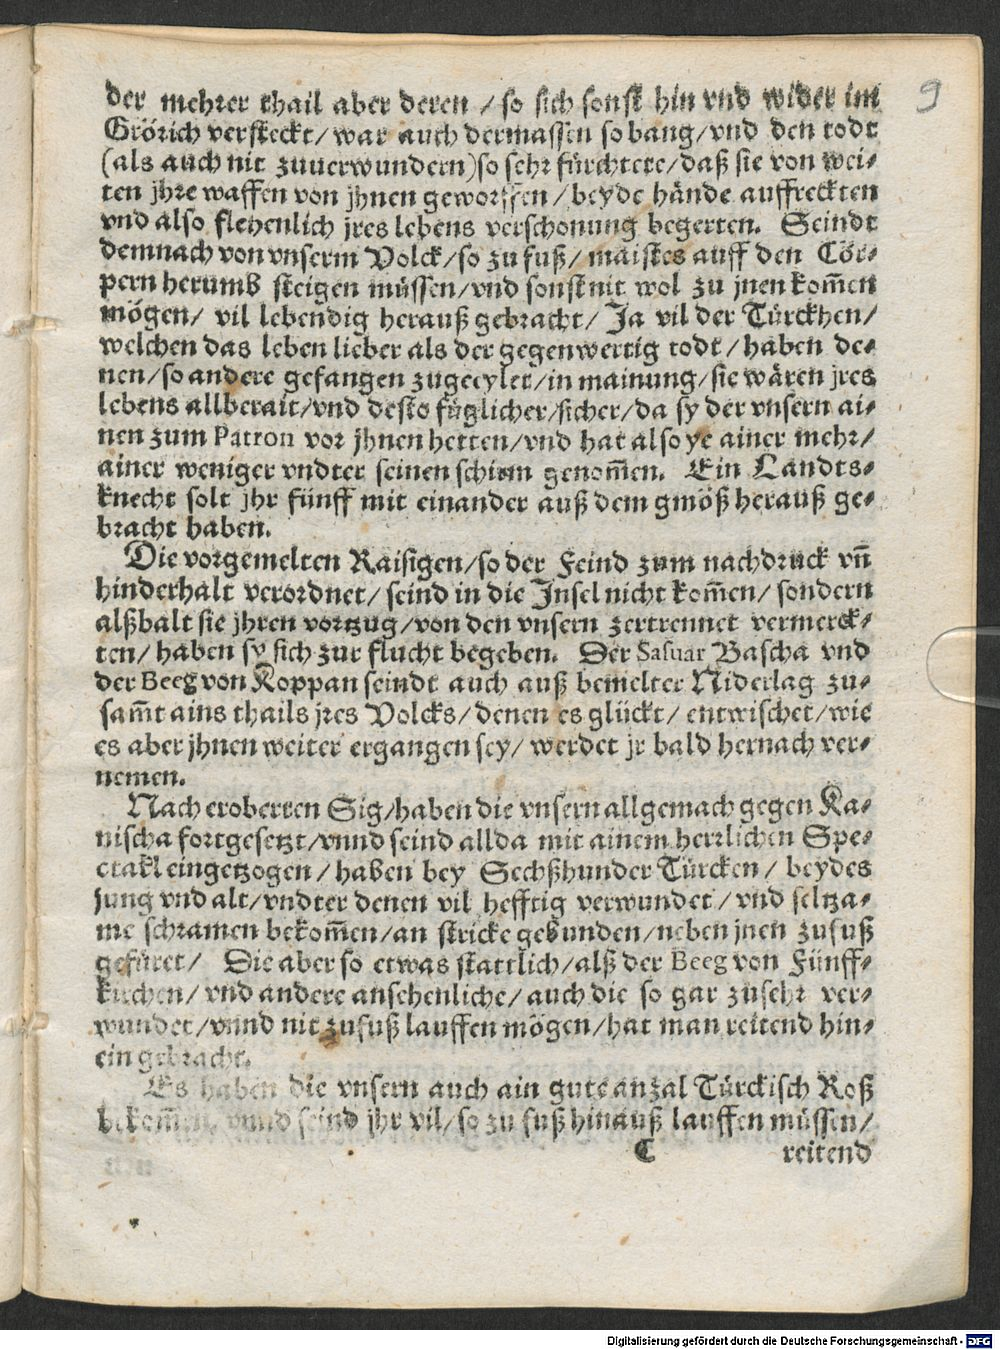 der mehrer thail aber deren / so sich sonst hin vnd wider im
9
Grörich versteckt/ war auch dermassen so bang/ vnd den todt
(als auch nit zuuerwundern) so sehr fürchtete/ daß sie von wei-
ten jhre waffen von jhnen geworffen / beyde hände auffreckten
vnd also flehenlich jres lebens verschonung begerten. Seindt
demnach von vnserm Volck/ so zu fuß/ maistes auff den Cör-
pern herumb steigen müssen/ vnd sonst nit wol zu jnen kom̃en
mögen/ vil lebendig herauß gebracht/ Ja vil der Türckhen/
welchen das leben lieber als der gegenwertig todt/ haben de-
nen/ so andere gefangen zugeeylet/ in mainung/ sie wären jres
lebens allberait/ vnd desto füglicher/ sicher/ da sy der vnsern ai-
nen zum Patron vor jhnen hetten/ vnd hat also ye ainer mehr/
ainer weniger vndter seinen schirm genom̃en. Ein Landts-
knecht solt jhr fünff mit einander auß dem gmöß herauß ge-
bracht haben.
Die vorgemelten Raisigen/ so der Feind zum nachdruck vn̄
hinderhalt verordnet/ seind in die Insel nicht kom̃en/ sondern
alßbalt sie jhren vortzug/ von den vnsern zertrennet vermerck-
ten/ haben sy sich zur flucht begeben. Der Sasuar Bascha vnd
der Beeg von Koppan seindt auch auß bemelter Niderlag zu-
sam̃t ains thails jres Volcks/ denen es glückt/ entwischet/ wie
es aber jhnen weiter ergangen sey/ werdet jr bald hernach ver-
nemen.
Nach eroberten Sig/ haben die vnsern allgemach gegen Ka-
nischa fortgesetzt/ vnnd seind allda mit ainem herrlichen Spe-
ctakl eingetzogen / haben bey Sechßhunder Türcken/ beydes
jung vnd alt/ vndter denen vil hefftig verwundet/ vnd seltza-
me schramen bekom̃en/ an stricke gebunden/ neben jnen zufuß
gefüret/ Die aber so etwas stattlich/ alß der Beeg von Fünff-
kirchen/ vnd andere ansehenliche/ auch die so gar zusehr ver-
wundet/ vnnd nit zufuß lauffen mögen/ hat man reitend hin-
ein gebracht.
Es haben die vnsern auch ain gute anzal Türckisch Roß
bekom̃en, vnnd seind jhr vil/ so zu fuß hinauß lauffen müssen/
C reitend
Digitalisierung gefördert durch die Deutsche Forschungsgemeinschaft - DFG